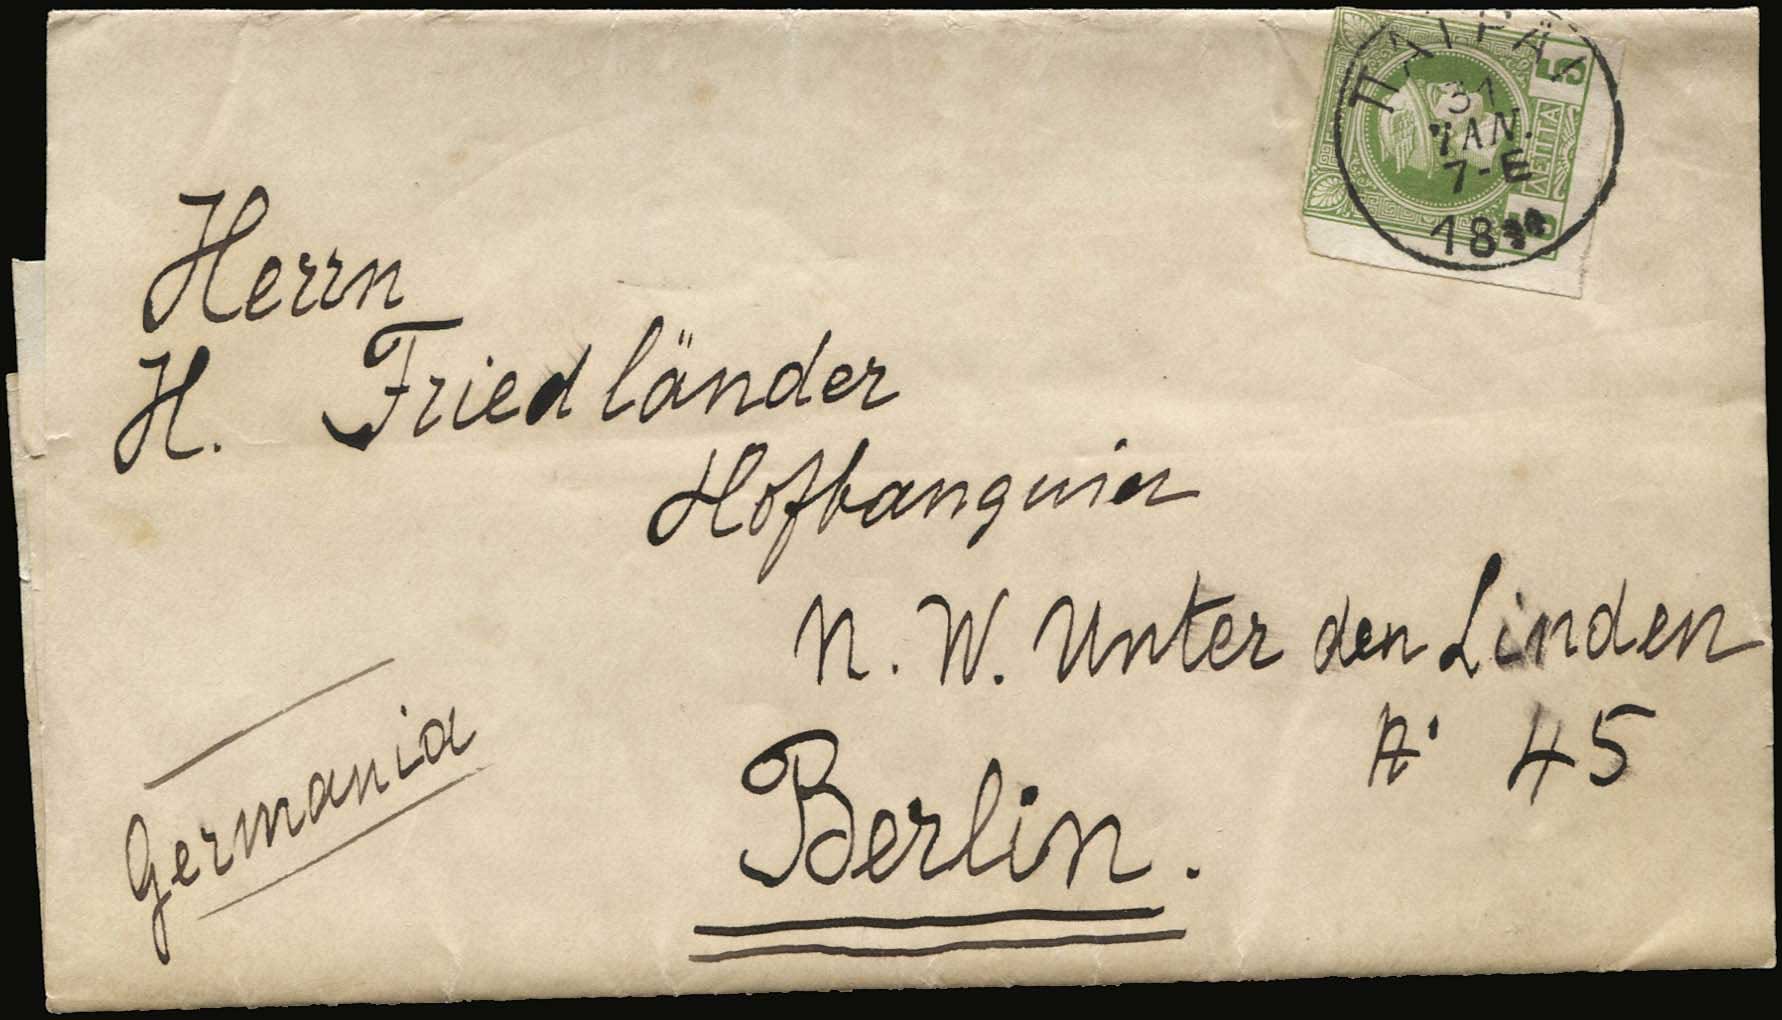 ΠΑΤΡΑΙ
31
ΙΑΝ.
7-Ε
18
5
ΛΕΠΤΑ
5
Herrn
H. Friedländer
Hofbanquier
N. W. Unter den Linden
45
Berlin.
Germania